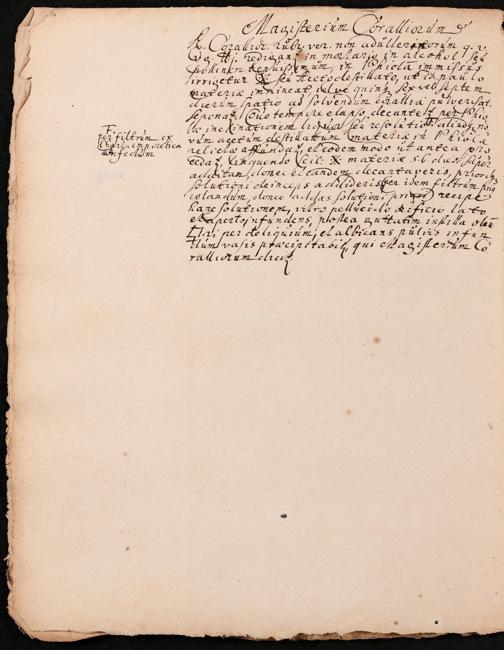 Magisterium Coralliorum
℞. Corallior. rubr. ver. non adulleratorum q. v.
redigant. in mortario in alcohol seu
pollinem tenuissimum, in Phiola immissus
irrigetur seu Aceto destillato, ut is paulo
materiæ immineat, idq3 quinq3 sex vel septem
dierum spatio ad solvendum corallia pulverisat.
seponat. Quo tempore elapso, decantet. per Phio
læ inclinationem liquor seu resolutio aliudq3 no
vum acetum destillatum materiæ in Phiola
relictæ affundat, et eodem modo ut antea pro
cedat, linquendo scil. materiæ 5 6 dies super
additam, donec et eandem decantaveris, priorq3
solutioni deinceps addideris per idem filtrum
colandum, donec addas solutioni priori recipe
hanc solutionem, vitro pellucido orificio lato
excaperis infundens, postea guttatim instilla oleu
Tartari per deliquium, et albicans pulvis in fun
dum vasis præcipitabit, qui Magisterium Co
ralliorum dicit.
per filtrum ex
charta emporetica
confectum